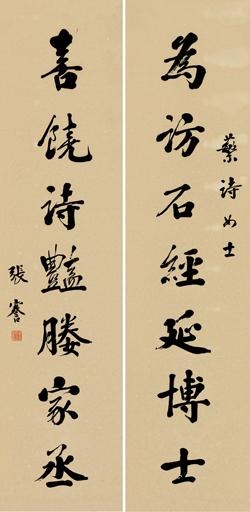 蘩詩女士
為訪石經延博士
喜饒詩豔媵家丞
張謇